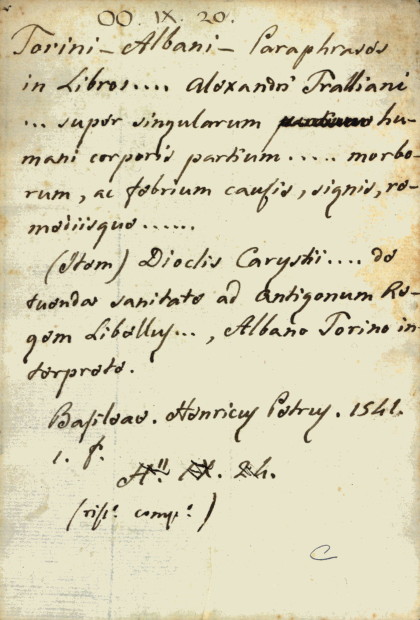 OO. IX. 20.
Torini - Albani - Paraphrases
in Libros.... Alexandri Tralliani
... super singularum hu-
mani corporis partium ..... morbo-
rum, ac febrium causis, signis, re-
mediisque ......
(Item) Dioclis Carysti .... de
tuenda sanitate ad Antigonum Re-
gem Libellus ... , Albano Torino in-
terprete.
Basileae. Henricus Petrus. 1541.
1. f.
24.
(rise. comp.e)
C